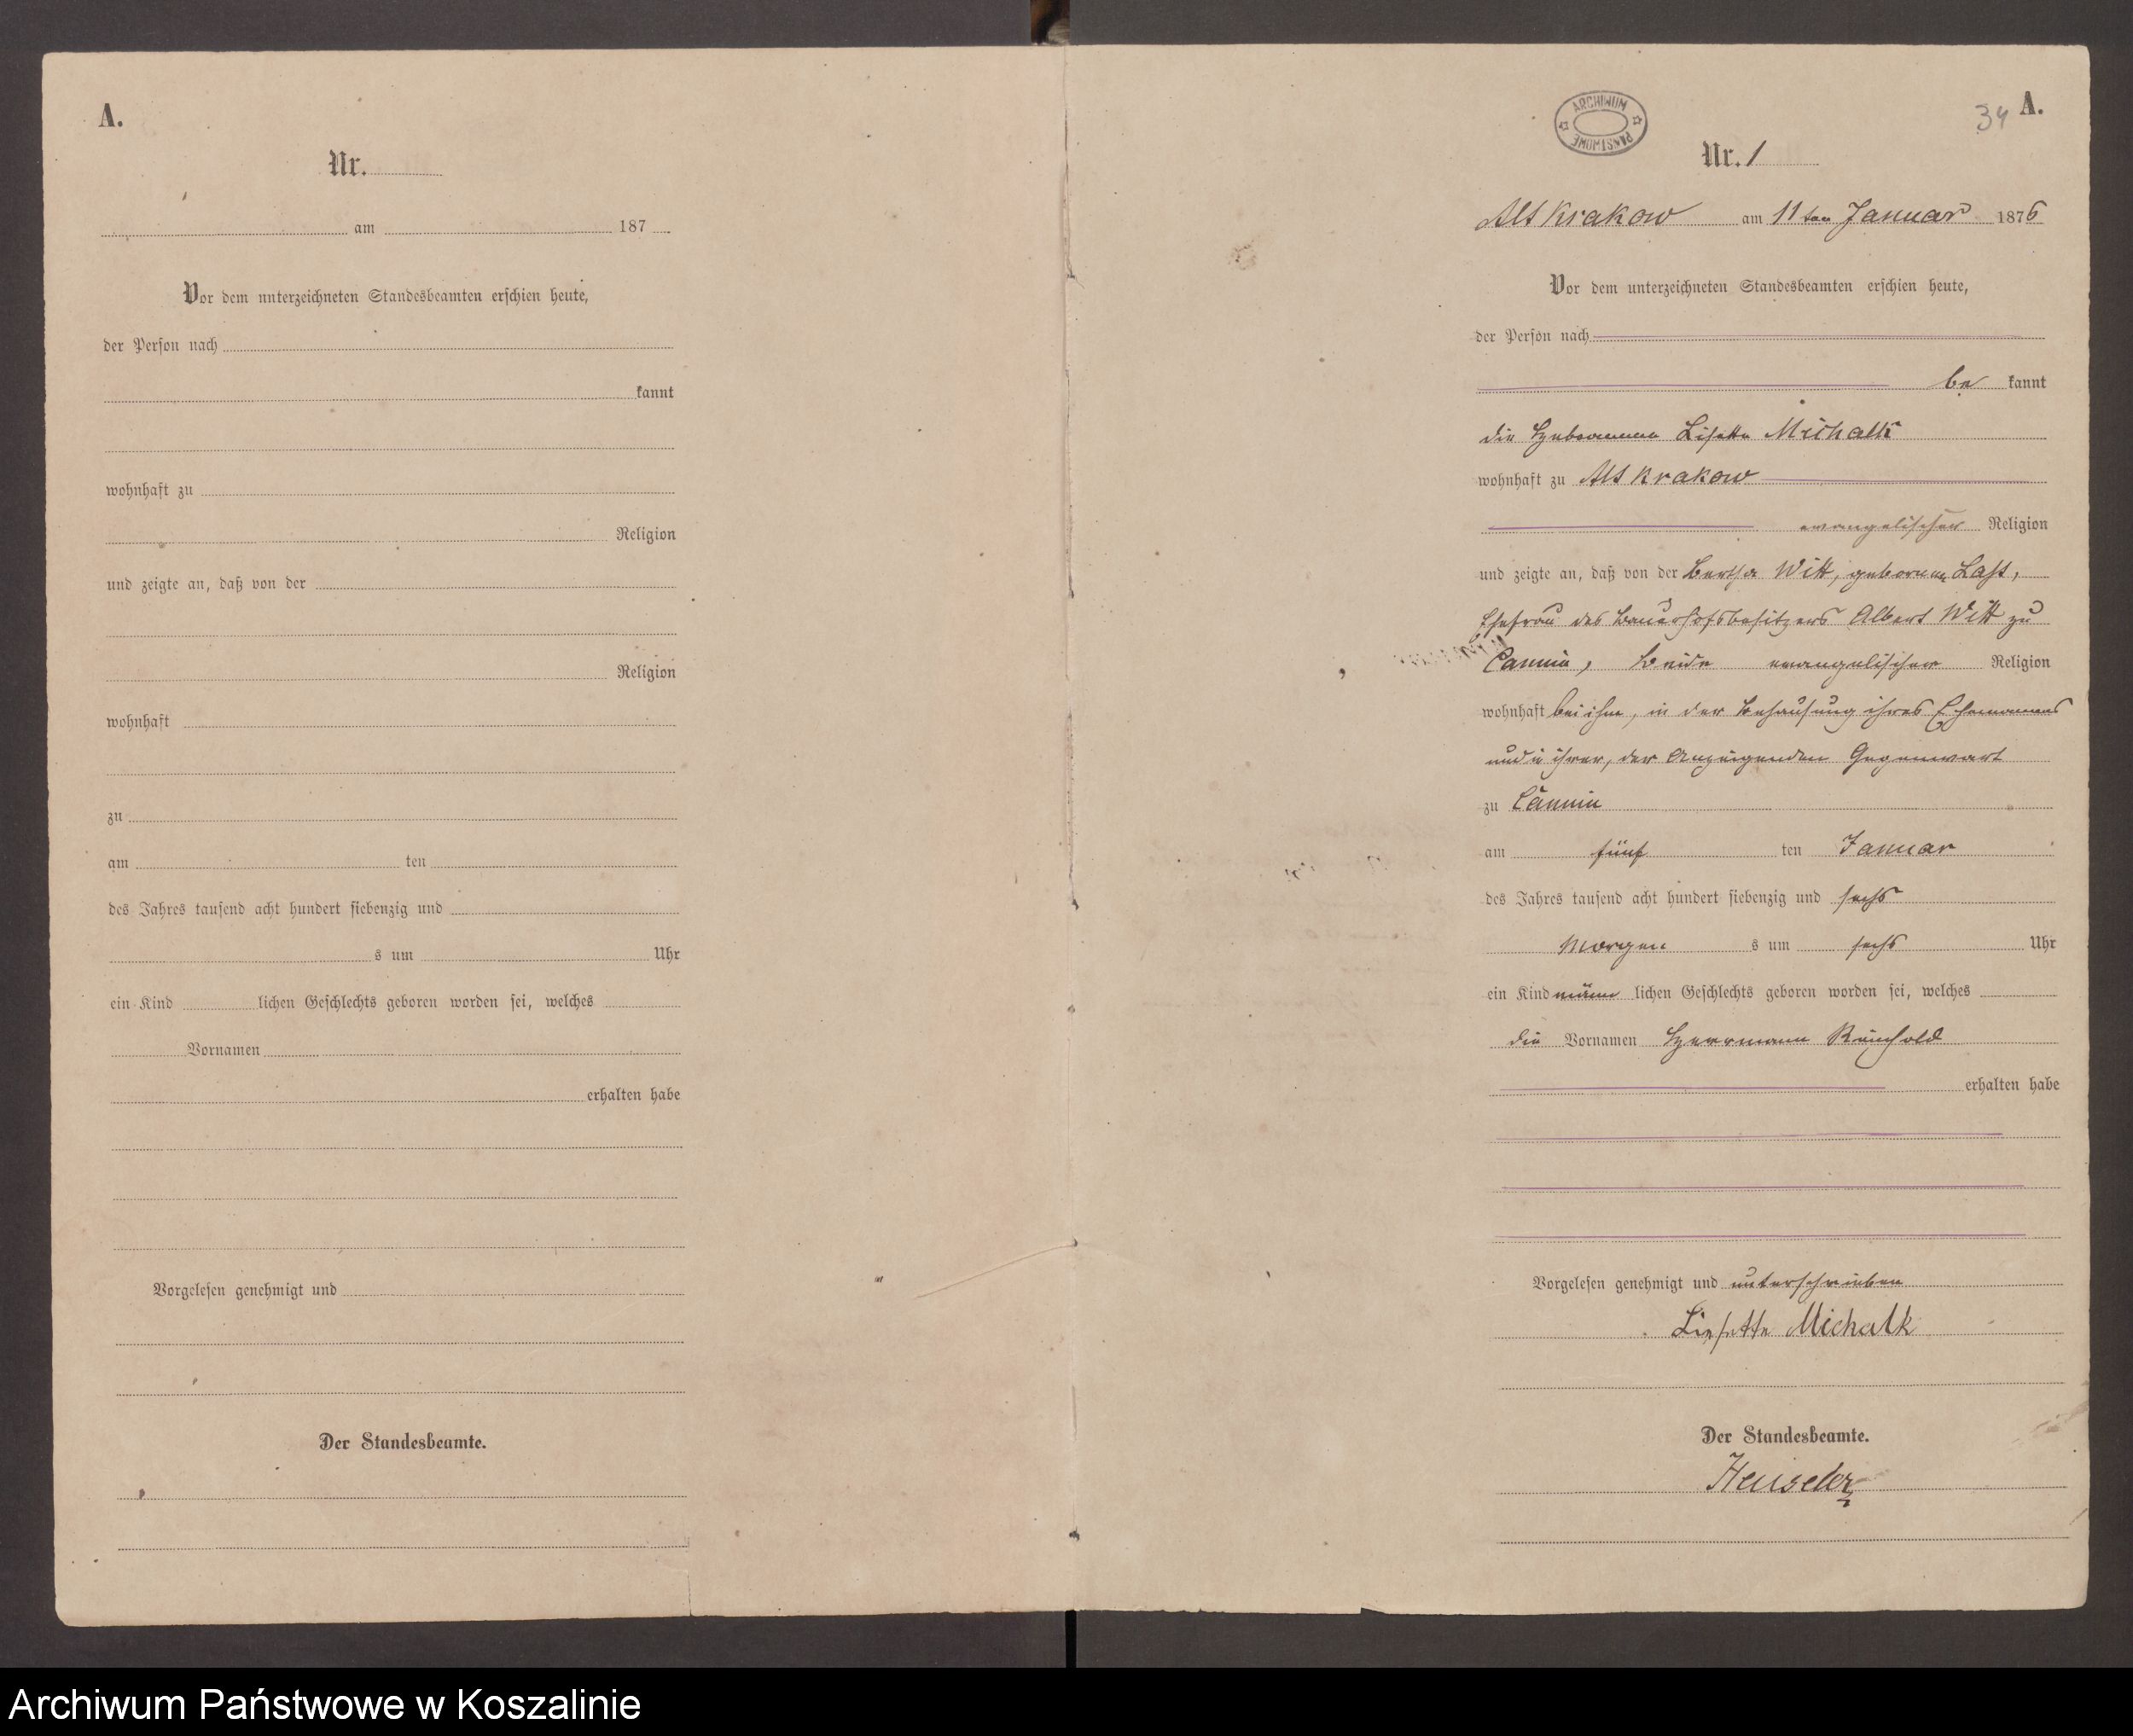 A.
Nr.
am 187
Vor dem unterzeichneten Standesbeamten erschien heute,
der Person nach
kannt
wohnhaft zu
Religion
und zeigte an, daß von der
Religion
wohnhaft
zu
am ten
des Jahres tausend acht hundert siebenzig und
s um Uhr
ein Kind lichen Geschlechts geboren worden sei, welches
Vornamen
erhalten habe
Vorgelesen genehmigt und
Der Standesbeamte.
ARCHIWUM PAŃSTWOWE
34 A.
Nr. 1
Alt Krakow am 11ten Januar 1876
Vor dem unterzeichneten Standesbeamten erschien heute,
der Person nach
be kannt
die Hebamme Lisette Michalk
wohnhaft zu Alt Krakow
evangelischer Religion
und zeigte an, daß von der Bertha Witt, geborene Laß,
Ehefrau des Bauerhofsbesitzers Albert Witt zu
Cannin, beide evangelischer Religion
wohnhaft bei ihm, in der Behausung ihres Ehemannes
und in ihrer, der Anzeigenden Gegenwart
zu Cannin
am fünf ten Januar
des Jahres tausend acht hundert siebenzig und sechs
Morgen s um sechs Uhr
ein Kind männ lichen Geschlechts geboren worden sei, welches
die Vornamen Herrmann Reinhold
erhalten habe
Vorgelesen genehmigt und unterschrieben
Liesette Michalk
Der Standesbeamte.
Heuseler
Archiwum Państwowe w Koszalinie